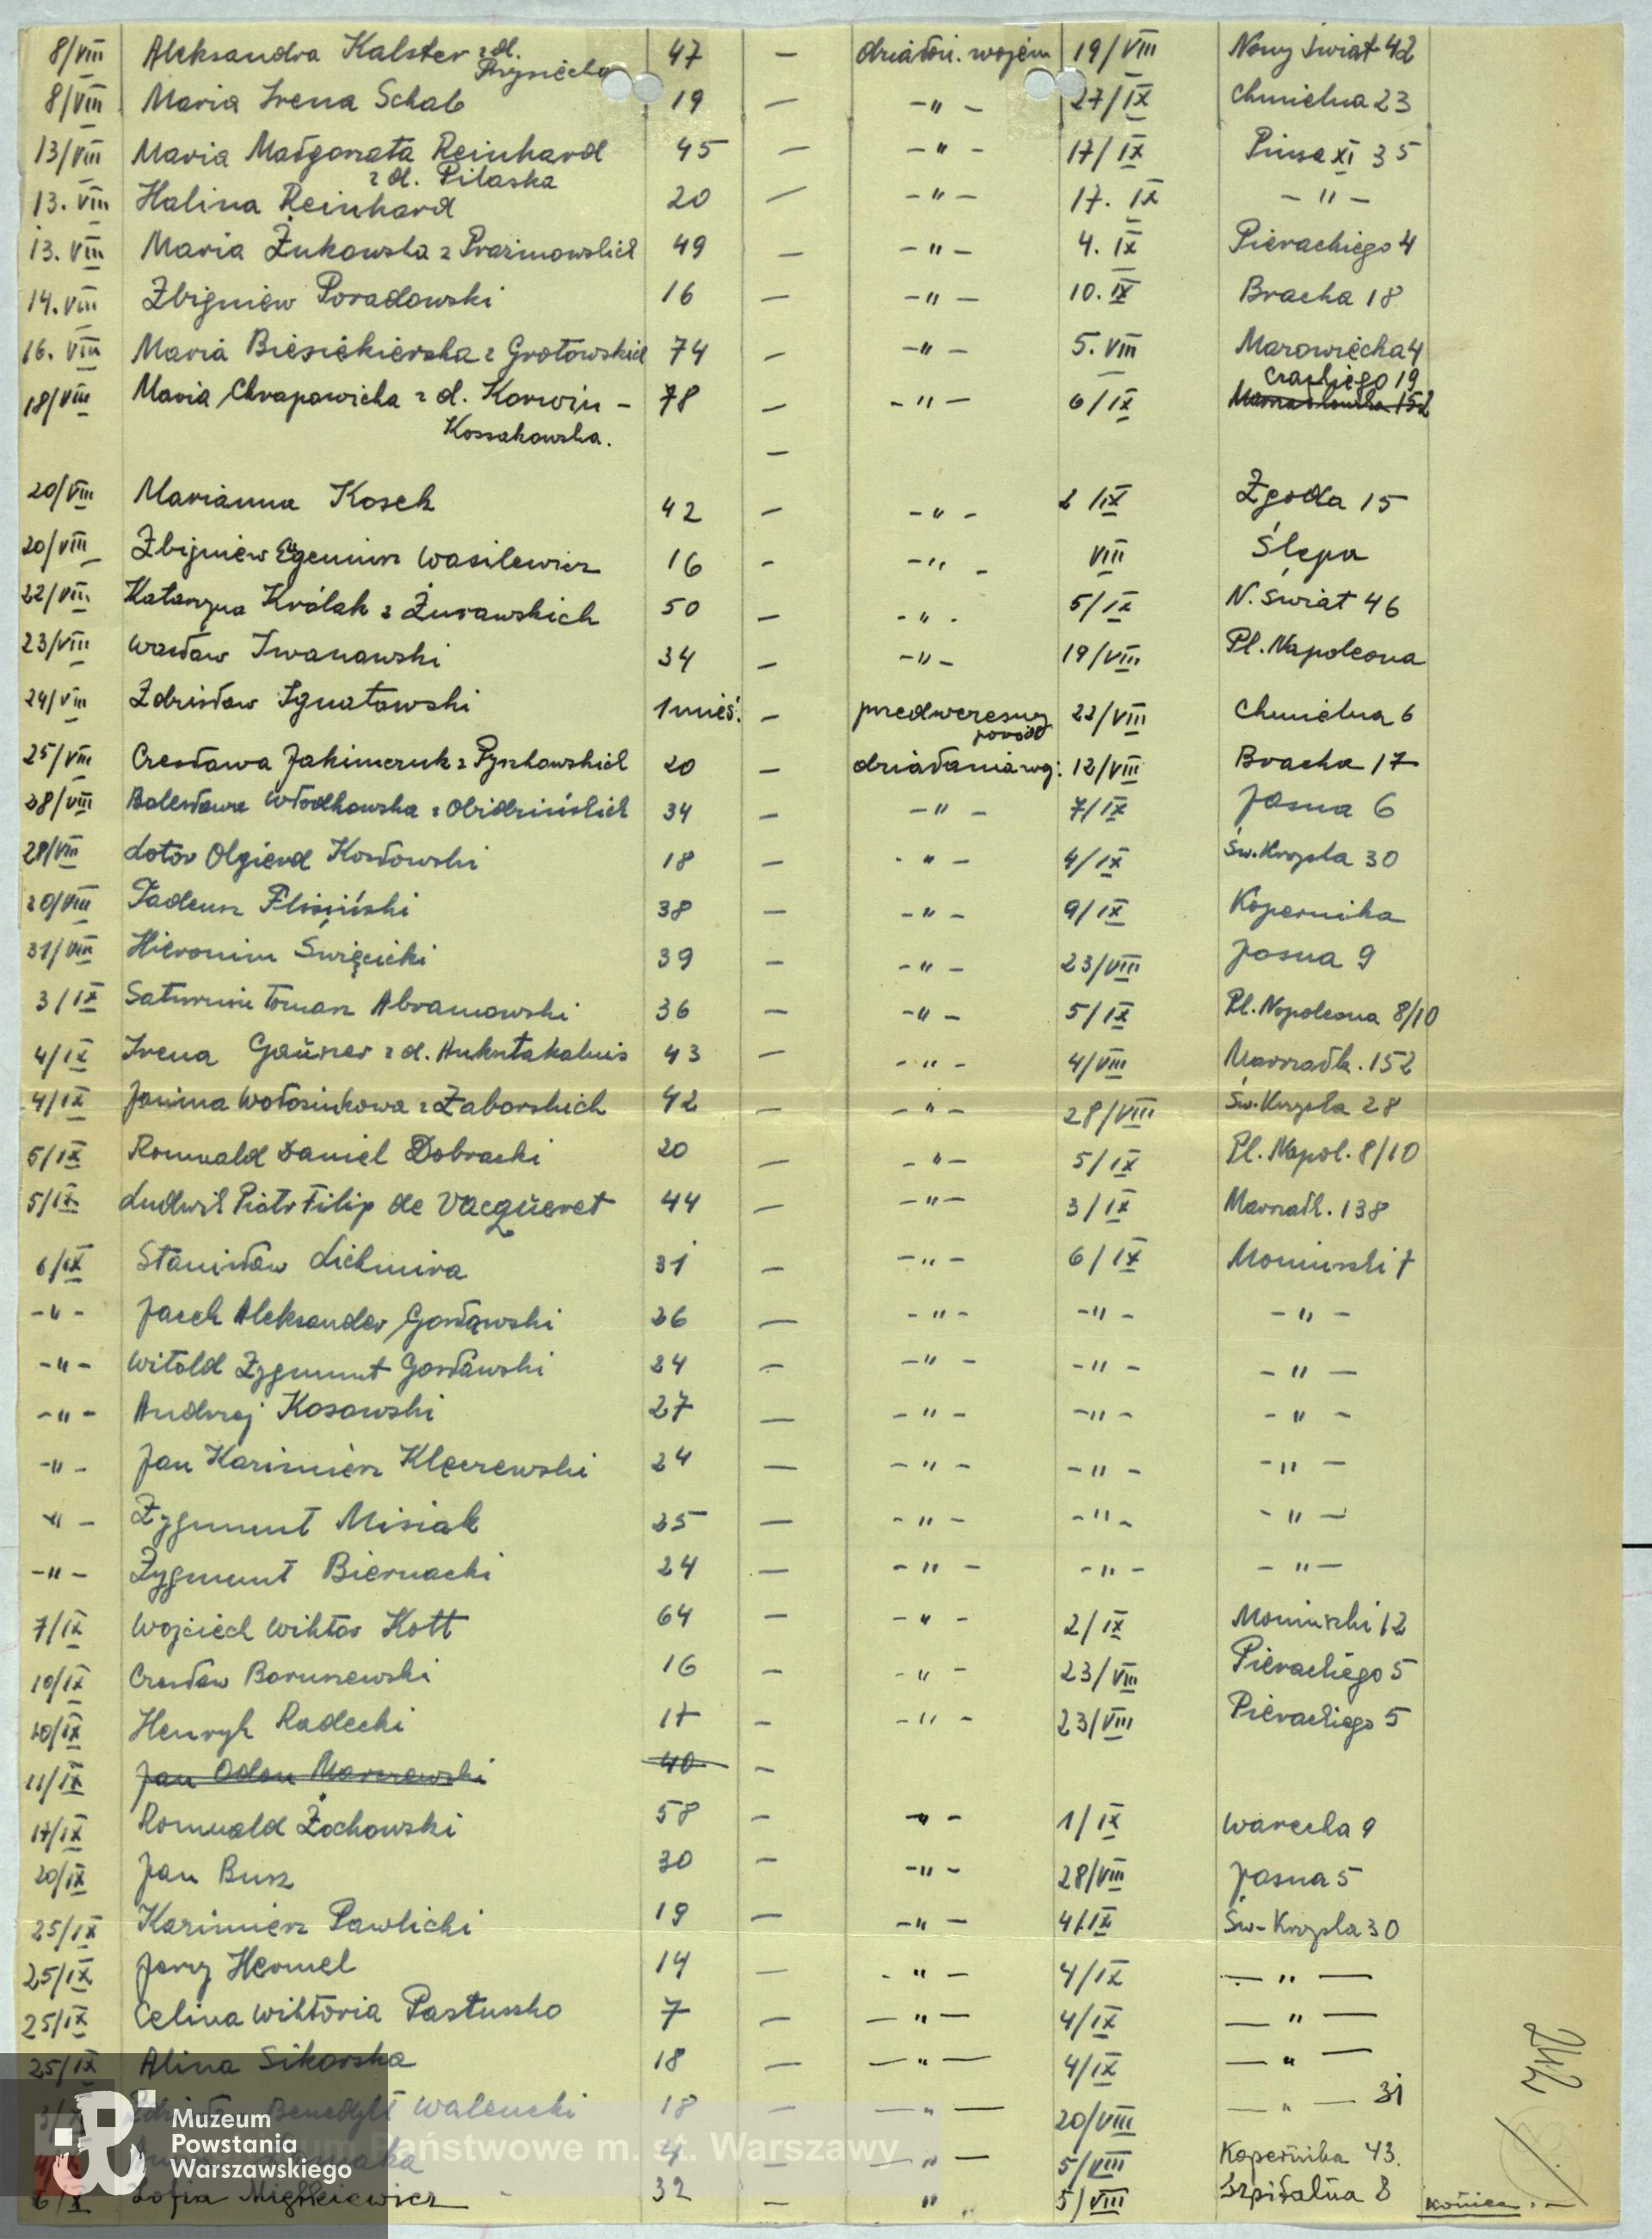 8/VIII Aleksandra Kalster z d. 47 — działań. wojen 19/VIII Nowy Świat 42
8/VIII Maria Irena Schab 19 — -"- 27/IX Chmielna 23
13/VIII Maria Małgorzata Reinhard 45 — -"- 17/IX Piusa XI 35
z d. Pilaska
13. VIII Halina Reinhard 20 — -"- 17. IX -"-
13. VIII Maria Żukowska z Prażmowskich 49 — -"- 4. IX Pierackiego 4
14. VIII Zbigniew Poradowski 16 — -"- 10. IX Bracka 18
16. VIII Maria Biesiekierska z Grotowskich 74 — -"- 5. VIII Mazowiecka 4
18/VIII Maria Chrapowicka z d. Korwin - 78 — -"- 6/IX Czackiego 19
Kossakowska. — 
20/VIII Marianna Kosek 42 — -"- 2 IX Zgoda 15
20/VIII Zbigniew Eugeniusz Wasilewicz 16 - -"- VIII Ślepa
22/VIII Katarzyna Królak z Żurawskich 50 — -"- 5/IX N. Świat 46
23/VIII Wacław Iwanowski 34 — -"- 19/VIII Pl. Napoleona
24/VIII Zdzisław Ignatowski 1 mieś. — przedwczesny 22/VIII Chmielna 6
poród
25/VIII Czesława Jakimczuk z Pyszkowskich 20 — działania woj: 12/VIII Bracka 17
28/VIII Bolesława Włodkowska z Obidzińskich 34 — -"- 7/IX Jasna 6
28/VIII Lotar Olgierd Kozłowski 18 — -"- 4/IX Św. Krzyska 30
20/VIII Tadeusz Flisiński 38 — -"- 9/IX Kopernika
31/VIII Hieronim Święcicki 39 — -"- 23/VIII Jasna 9
3/IX Saturnin Tomasz Abramowski 36 — -"- 5/IX Pl. Napoleona 8/10
4/IX Irena z d. 43 — -"- 4/VIII Marszałk. 152
4/IX Janina Wołosiukowa z Zaborskich 42 — -"- 28/VIII Św. Krzyska 28
5/IX Romuald Daniel Dobracki 20 — -"- 5/IX Pl. Napol. 8/10
5/IX Ludwik Piotr Filip de Vacqueret 44 — -"- 3/IX Marszałk. 138
6/IX Stanisław Lichmira 31 — -"- 6/IX Moniuszki 7
-"- Jacek Aleksander Gosławski 26 — -"- -"- -"-
-"- Witold Zygmunt Gosławski 24 — -"- -"- -"-
-"- Andrzej Kosowski 27 — -"- -"- -"-
-"- Jan Kazimierz Kleczewski 24 — -"- -"- -"-
-"- Zygmunt Misiak 25 — -"- -"- -"-
-"- Zygmunt Biernacki 24 — -"- -"- -"-
7/IX Wojciech Wiktor Kott 64 — -"- 2/IX Moniuszki 12
10/IX Czesław Boruszewski 16 — -"- 23/VIII Pierackiego 5
10/IX Henryk Radecki 17 — -"- 23/VIII Pierackiego 5
11/IX Jan Odon Marczewski 40 —
17/IX Romuald Żochowski 58 — -"- 1/IX Warecka 9
20/IX Jan Busz 30 — -"- 28/VIII Jasna 5
25/IX Kazimierz Pawlicki 19 — -"- 4/IX Św-Krzyska 30
25/IX Jerzy Hermel 14 — -"- 4/IX -"-
25/IX Celina Wiktoria Pastuszko 7 — -"- 4/IX -"-
25/IX Alina Sikorska 18 — -"- 4/IX -"-
Benedykt Walencki 18 — -"- 20/VIII -"- 31
4 — -"- 5/VIII Kopernika 43.
6/X Zofia Mickiewicz 32 — " 5/VIII Szpitalna 8 koniec.-
Muzeum
Powstania
Warszawskiego
Państwowe m. st. Warszawy